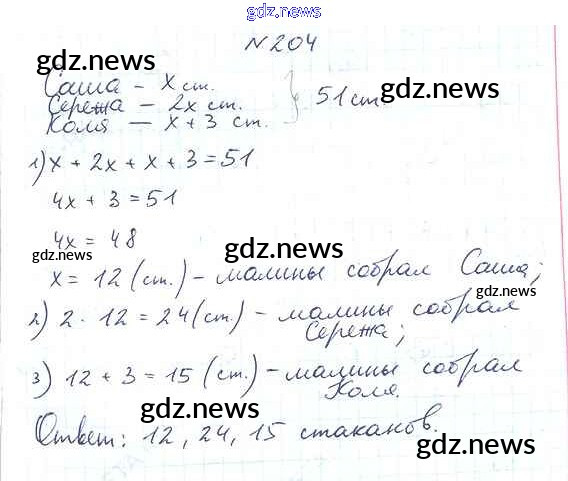 gdz.news
N 204
gdz.news
Саша - x ст.
Сережа - 2x ст. } 51 ст. gdz.news
Коля - x + 3 ст.
1) x + 2x + x + 3 = 51
4x + 3 = 51
4x = 48
gdz.news gdz.news
x = 12 (ст.) - малины собрал Саша;
gdz.news
2) 2 · 12 = 24 (ст.) - малины собрал
Сережа;
3) 12 + 3 = 15 (ст.) - малины собрал
Коля.
gdz.news gdz.news
Ответ: 12, 24, 15 стаканов.
gdz.news gdz.news